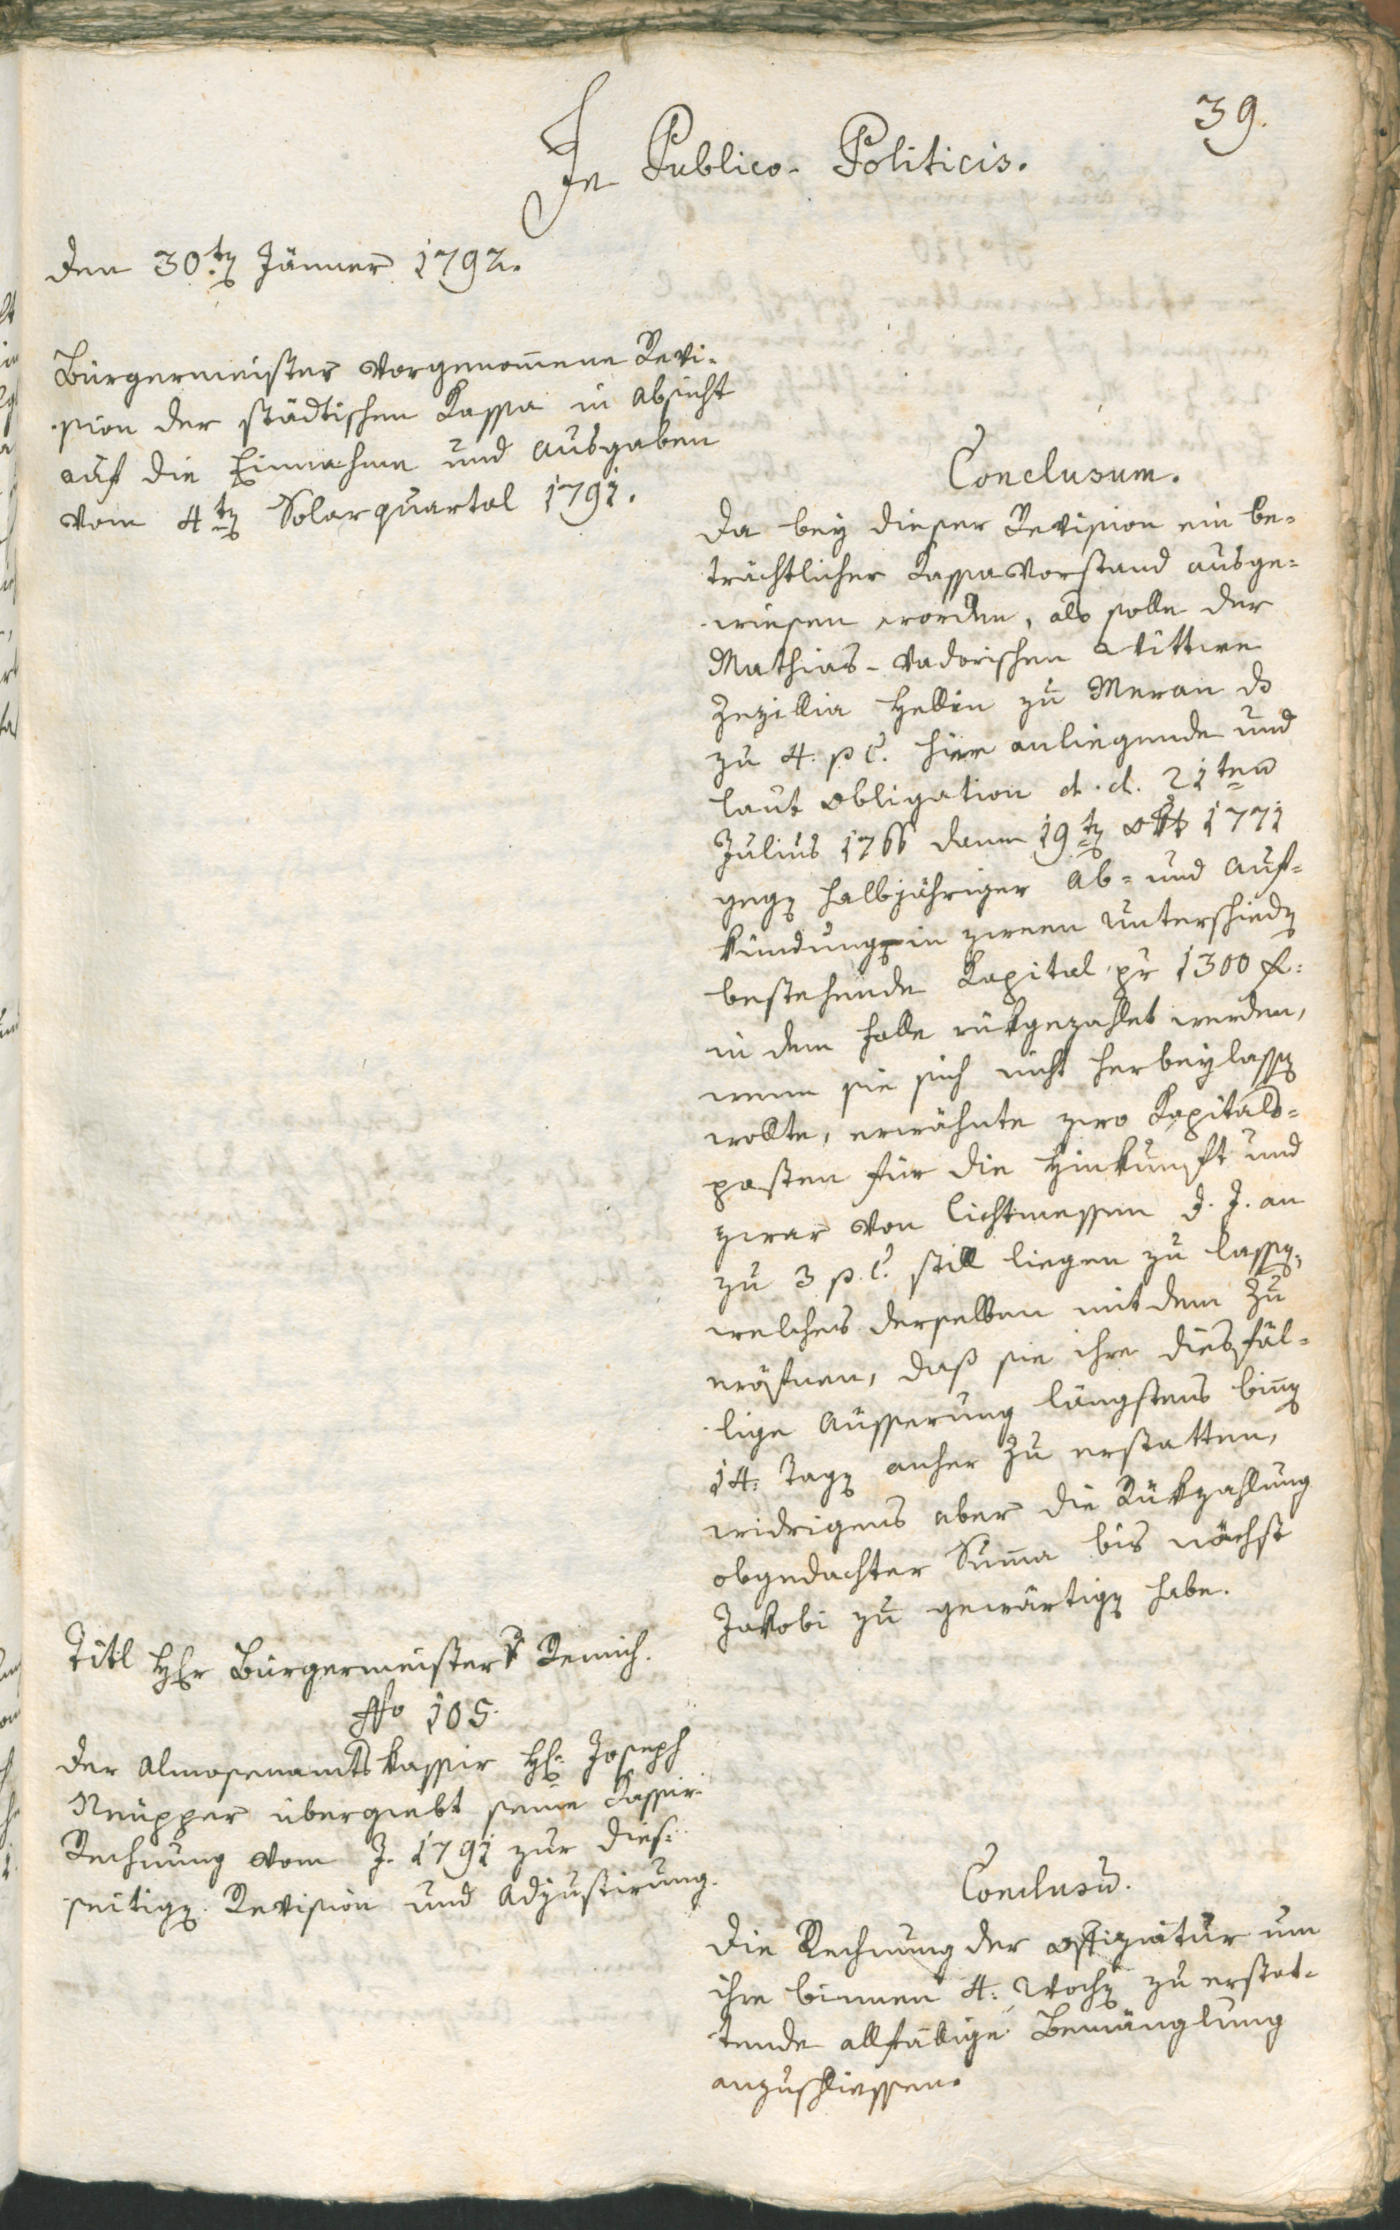 39.
In Publico-Politicis.
den 30ten Jänner 1792.
Bürgermeister vorgenom̄ene Revi-
sion der städtischen Kassa in Absicht
auf die Einnahme und Ausgaben
vom 4ten Solarquartal 1791.
Conclusum.
Da bey dieser Revision ein be-
trächtlicher Kassavorstand ausge-
wiesen worden, als solle der
Mathias-Vadorischen Wittwe
Zezillia Hellin zu Meran das
zu 4. p C. hier anliegende und
laut Obligation d. d. 21ten
Julius 1766 dann 19ten 1771
gegen halbjähriger Ab- und Auf-
kündung in zween Unterschieden
bestehende Kapital pr 1300 f:
in dem Falle rükgezahlet werden,
wenn sie sich nicht herbeylassen
wollte, erwähnte zwo Kapitals-
posten für die Hinkunft und
zwar von Lichtmessen d. J. an
zu 3 p. C. still liegen zu lassen,
welches derselben mit dem zu
eröfnen, daß sie ihre diesfäl-
lige Äusserung längstens biñen
14: Tagen anher zu erstatten,
widrigens aber die Rükzahlung
obgedachter Sum̄a bis nächst
Jakobi zu gewärtigen habe.
Titl Hr Bürgermeister Remich.
No 105.
Der Almosenamts Kassier H: Joseph
Neupper übergiebt seine Kassier-
Rechnung vom J. 1791 zur dies-
seitigen Revision und Adjustirung.
Conclusū.
Die Rechnung der Offiziatur um
ihre binnen 4: Wochen zu erstat-
tende allfällige Bemänglung
anzuschliessen.